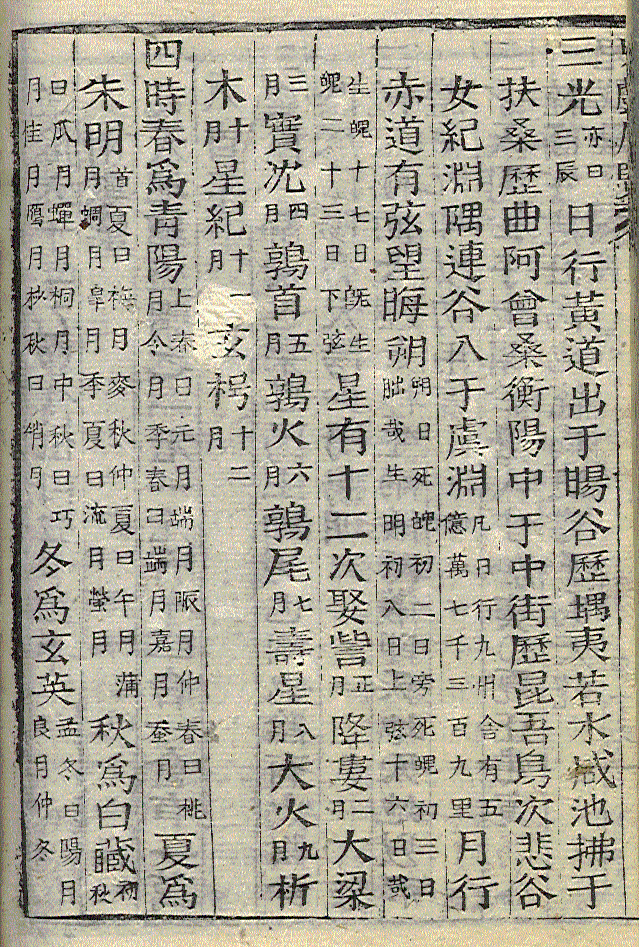 三光亦曰三辰日行黃道出于暘谷歷堣夷若水咸池拂于
扶桑歷曲阿曾桑衡陽中于中街歷昆吾鳥次悲谷
女紀淵隅連谷入于虞淵凡日行九州舍有五億萬七千三百九里月行
赤道有弦望晦朔朔日死魄初二日旁死魄初三日朏哉生明初八日上弦十六日哉
生魄十七日旣生魄二十三日下弦星有十二次娶訾正月降婁二月大梁
三月實沈四月鶉首五月鶉火六月鶉尾七月壽星八月大火九月析
木十月星紀十一月玄枵十二月
四時春爲青陽上春曰元月端月陬月仲春曰桃月令月季春曰喘月嘉月蚕月夏爲
朱明首夏曰梅月麥秋仲夏曰午月蒲月蜩月皐月季夏曰流月螢月秋爲白藏初秋
曰瓜月蟬月桐月中秋曰巧月桂月鴈月杪秋曰綃月冬爲玄英孟冬曰陽月良月仲冬